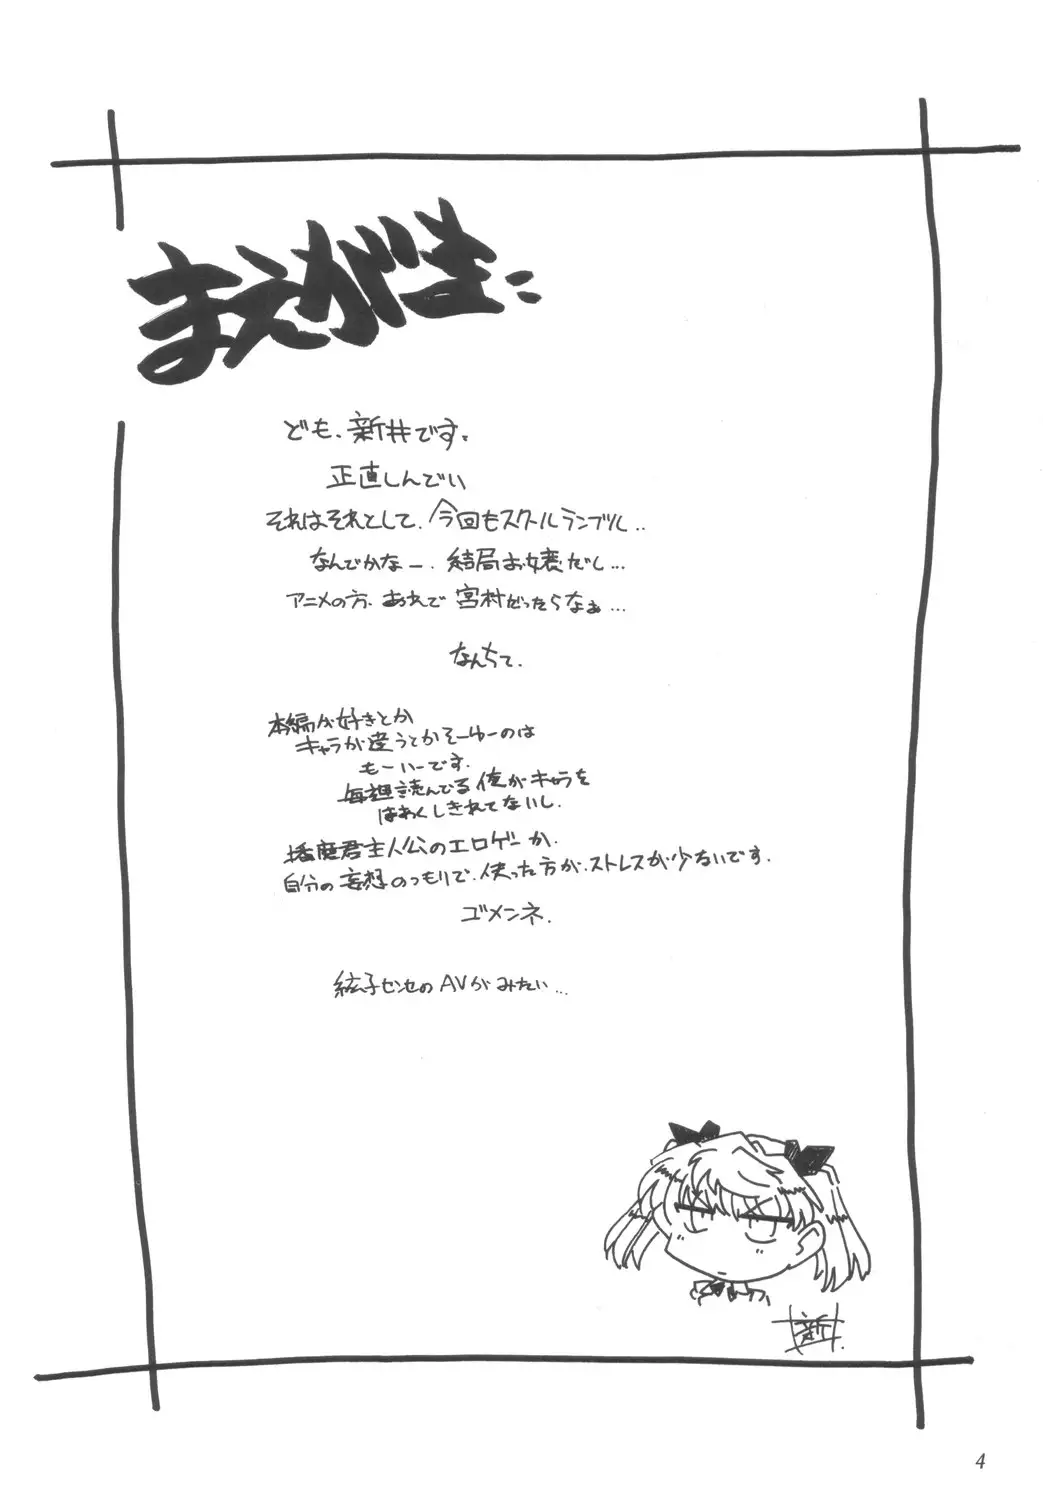 まえがき
ども、新井です。
正直しんでい
それはそれとして、今回もスクールランブルし..
なんでかなー、結局お嬢だし...
アニメの方、あれで宮村だったらなぁ...
なんちて、
本編が好きとか
キャラが違うとかそーゆーのは
もーいーです。
毎週読んでる俺がキャラを
はあくしきれてないし、
播磨君主人公のエロゲーか、
自分の妄想のつもりで、使った方が、ストレスが少ないです。
ゴメンネ、
絃子センセのAVがみたい...
新井
4